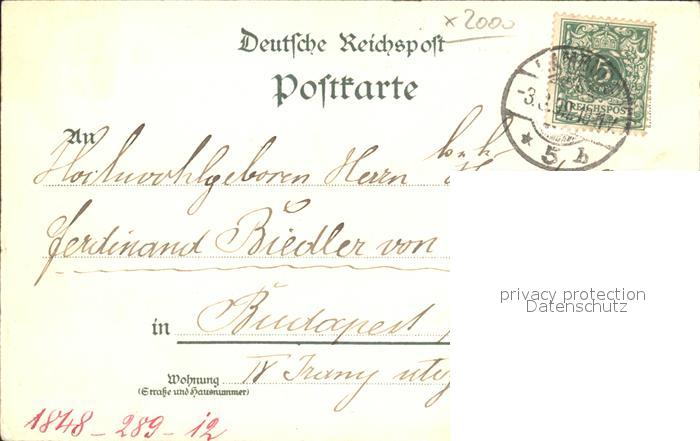 x 2000
Deutsche Reichspost
Postkarte
5
REICHSPOST
* 5 b
An
Hochwohlgeboren Herrn k. u. k.
Ferdinand Biedler von
in Budapest
IV Irany utcz
Wohnung
(Straße und Hausnummer)
privacy protection
Datenschutz
1848 - 289 - 12